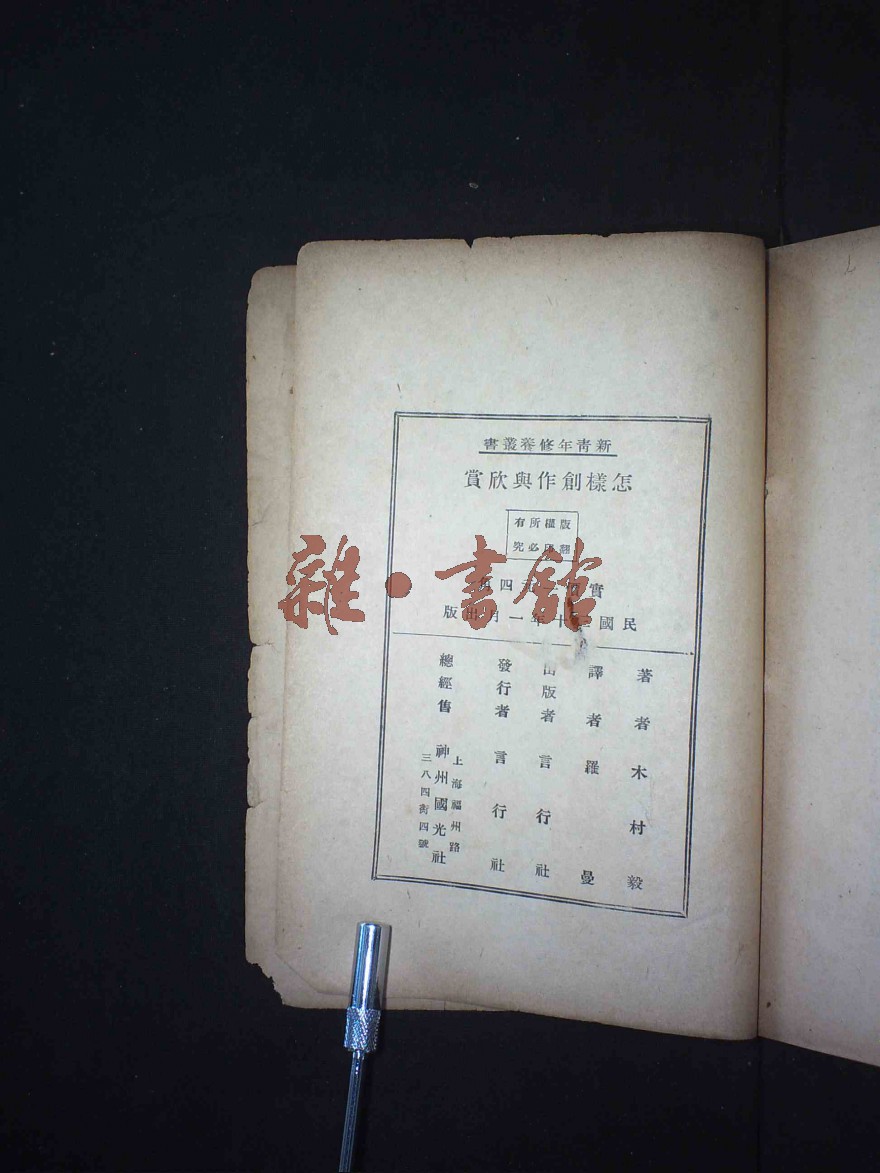 新青年修養叢書
怎樣創作與欣賞
版權所有
翻印必究
實 四
民國 十年一月出版
著者木村毅
譯者羅曼
出版者言行社
發行者言行社
總經售神州國光社
上海福州路
三八四街四號
雜·書館